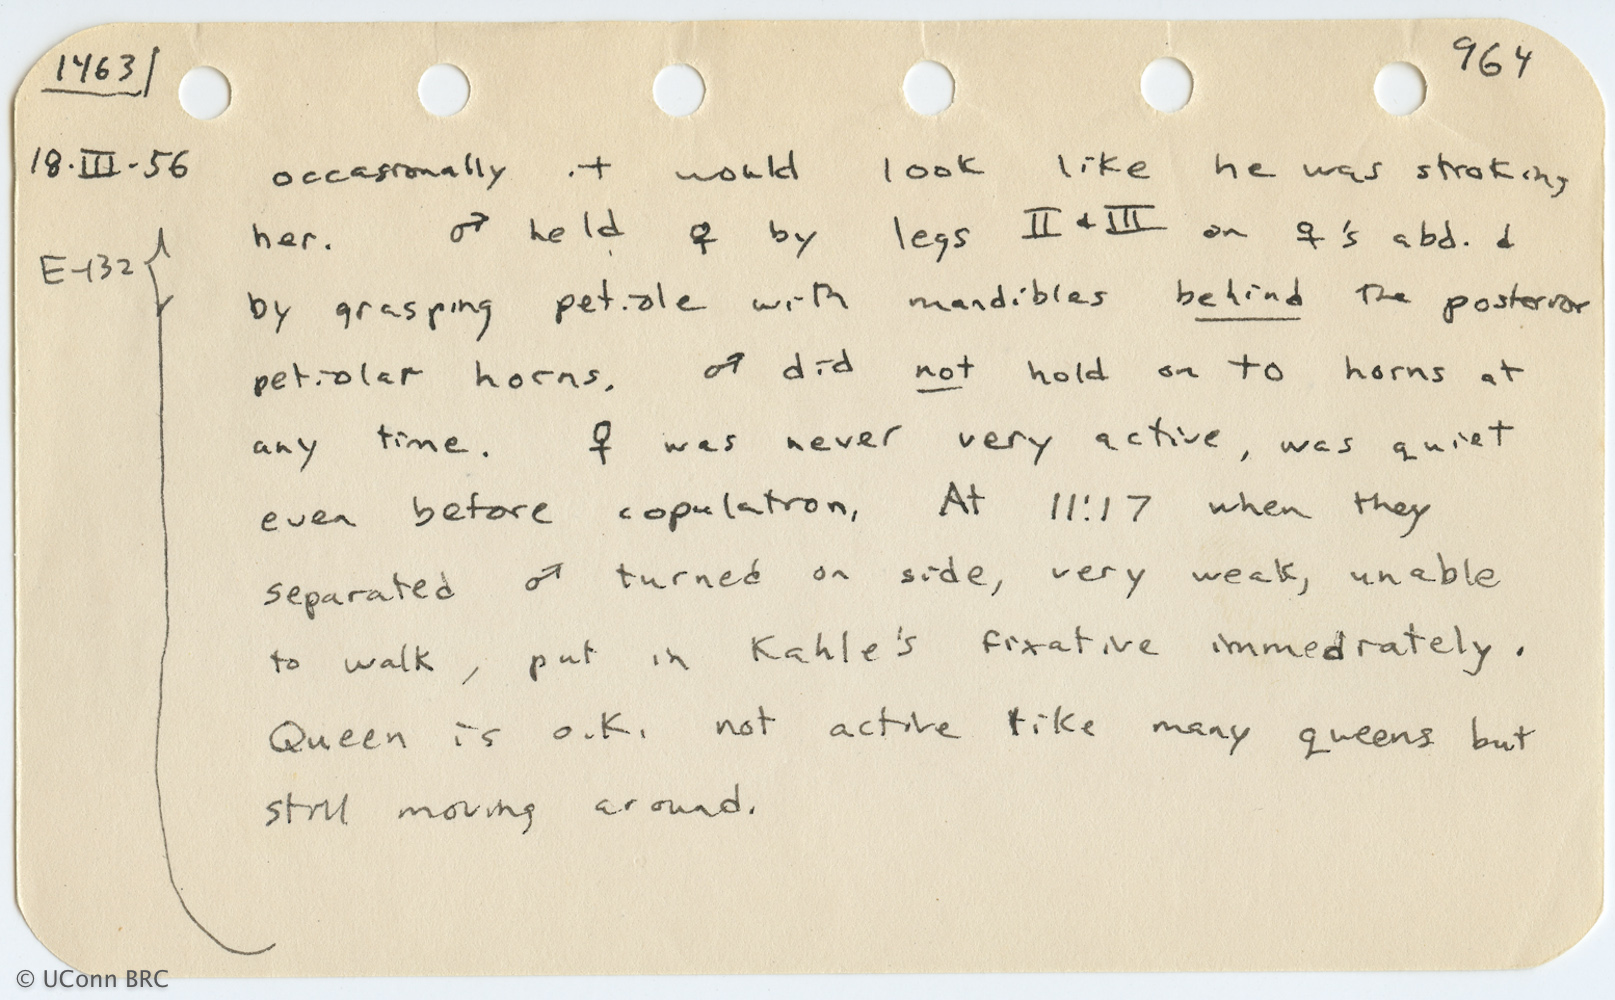 1463 964
18·III·56 occasionally it would look like he was stroking
her. ♂ held ♀ by legs II & III on ♀'s abd. &
E-132
by grasping petiole with mandibles behind the posterior
petiolar horns. ♂ did not hold on to horns at
any time. ♀ was never very active, was quiet
even before copulation. At 11:17 when they
separated ♂ turned on side, very weak, unable
to walk, put in Kahle's fixative immediately.
Queen is o.k. not active like many queens but
still moving around.
© UConn BRC